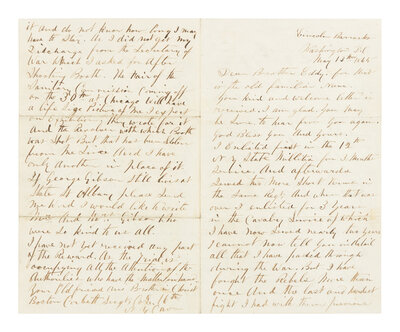 Lincoln Barracks
Washington D.C.
May 1865
Dear Brother Eddy, for that
is the old familiar name
Your kind and welcome letter is
received and glad was I
to hear from you again.
God Bless You And Yours.
I Enlisted first in the 12th
N Y State Militia for 3 Months
Service. And afterwards
Served two More Short times in
the Same Regt. And when that was
over I enlisted for 3 years
in the Cavalry Service of which
I have now Served nearly two years
I cannot now tell you in detail
all that I have passed through
during the war. But I have
fought the Rebels More than
once And the last and hardest
fight I had with them
it and do not know how long I may
have to stay. As I did not get my
Discharge from the Secretary of
War which I asked for After
Shooting Booth. The
Sanitary Commission coming off
on the 30th at Chicago will have
a Life Size Picture of Me
on exhibition they wish for it
And the Revolver with which Booth
was Shot But that has been stolen
from Me Since And I have
only Another in place of it
If George Gibson Still lives at
State St Albany please Send
My I would like to write
him And Mrs. Gibson who
were So kind to us all.
I have not yet received any part
of the Reward. As the trial is
occupying all the Attention of the
Authorities who have the Matter in hand
Your Old friend and Brother in Christ
Boston Corbett Sergt Co. L 16th
N Y Cav